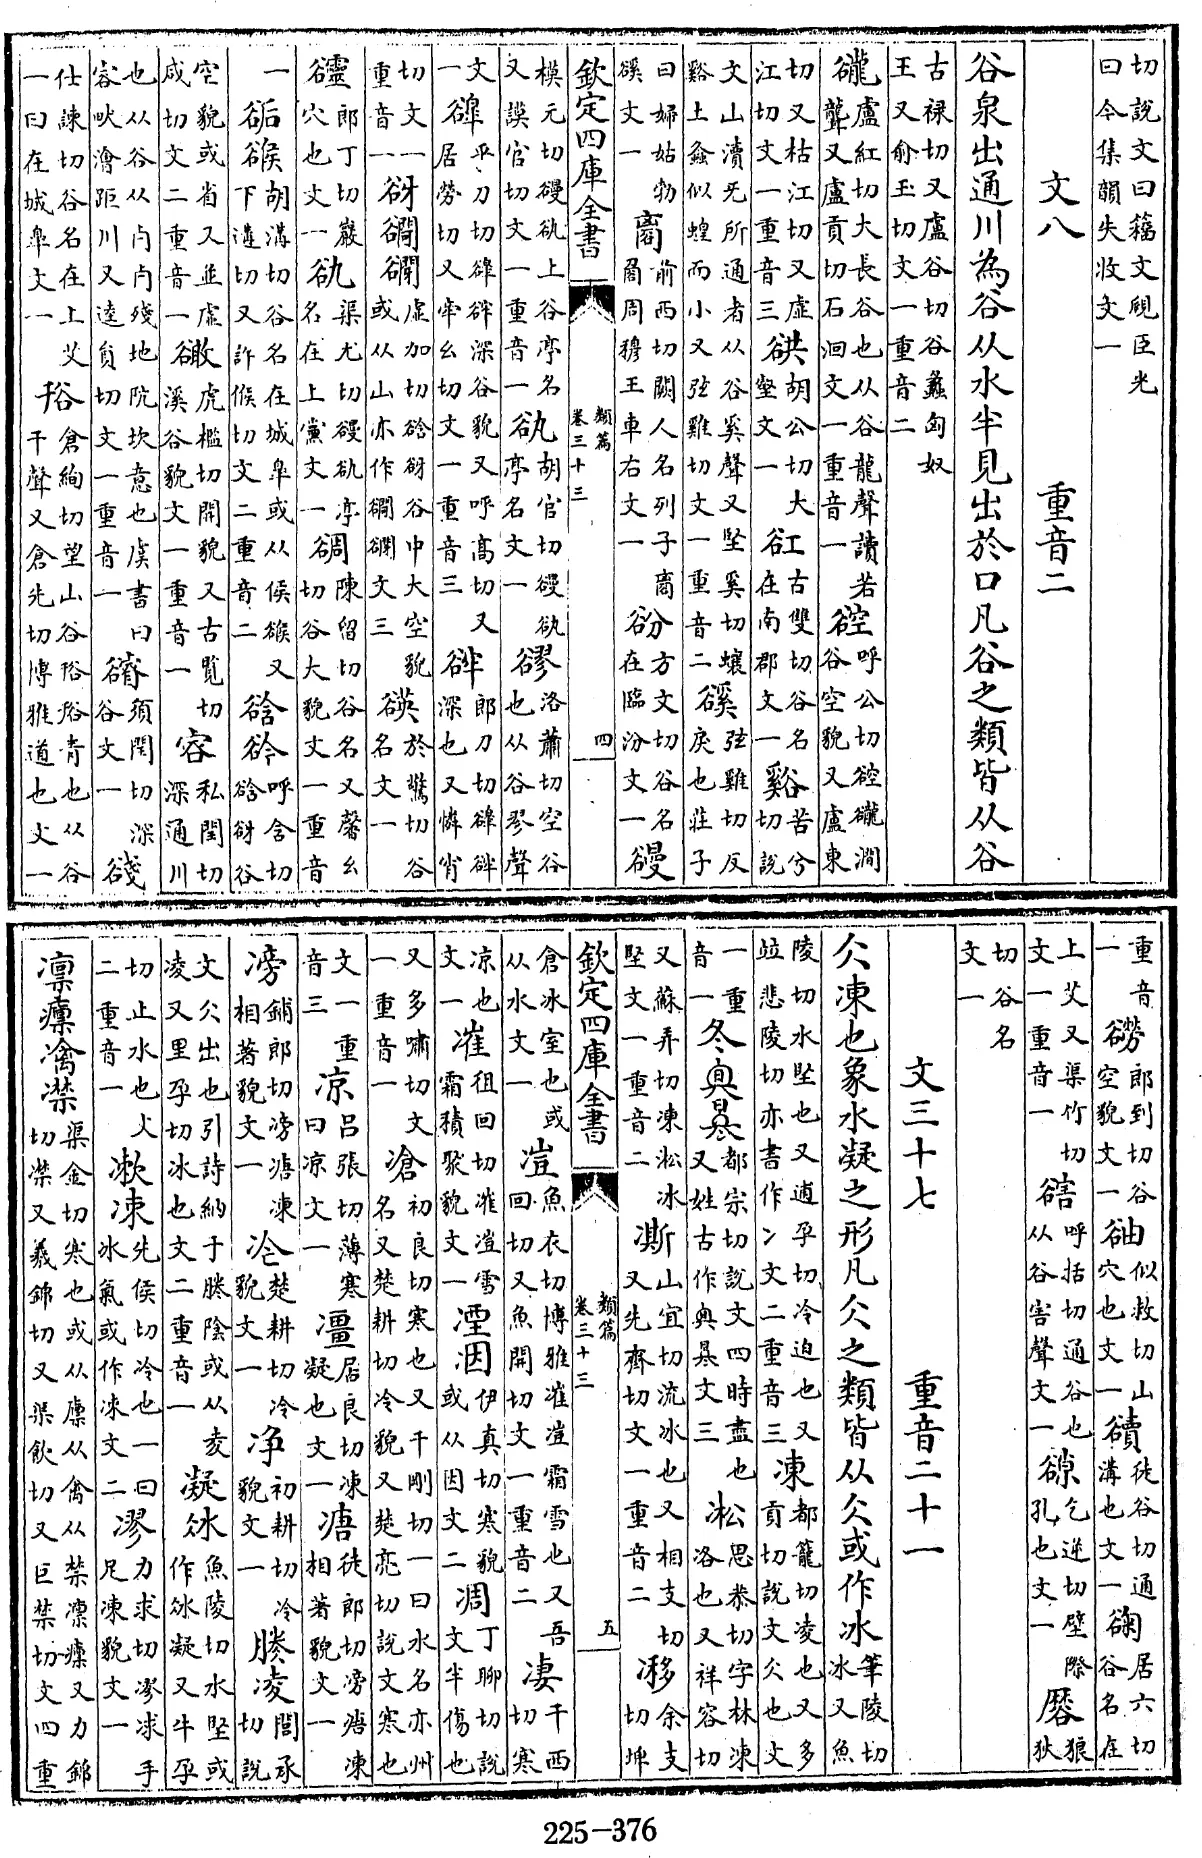 切說文曰籀文䚈臣光曰今集韻失收文一
文八　重音二
谷泉出通川為谷从水半見出於口凡谷之類皆从谷
古禄切又盧谷切谷蠡匈奴王又俞玉切文一重音二
豅盧紅切大長谷也从谷龍聲讀若聾又盧貢切石洄文一重音一谾呼公切谾豅澗谷空貌又盧東
切又枯江切又虛江切文一重音三谼胡公切大壑文一古雙切谷名在南郡文一谿苦兮切說
文山瀆旡所通者从谷奚聲又堅奚切蠰谿土螽似蝗而小又弦雞切文一重音二豀弦雞切反戾也莊子
曰婦姑勃豀文一前西切闕人名列子周穆王車右文一方文切谷名在臨汾文一
欽定四庫全書　類篇　卷三十三　四
模元切上谷亭名又謨官切文一重音一胡官切亭名文一豂洛蕭切空谷也从谷翏聲
文一乎刀切深谷貌又呼高切又居勞切又牢幺切文一重音三郎刀切深也又憐宵
切文一重音一谺虛加切谽谺谷中大空貌或从山亦作文三於驚切谷名文一
郎丁切巖穴也文一渠尤切亭名在上黨文一陳留切谷名又馨幺切谷大貌文一重音
一胡溝切谷名在城臯或从侯又下遘切又許候切文二重音二谽呼含切谽谺谷
空貌或省又並虛咸切文二重音一虎檻切開貌又古覽切溪谷貌文一重音一容私閏切深通川
也从谷从歺歺殘地阬坎意也虞書曰容畎澮距川又達貟切文一重音一須閏切深谷文一
仕諫切谷名在上艾一曰在城臯文一倉絢切望山谷俗俗青也从谷千聲又倉先切博雅道也文一
重音一郎到切谷空貌文一似救切山穴也文一徒谷切通溝也文一居六切谷名在
上艾又渠竹切文一重音一呼括切通谷也从谷害聲文一乞逆切壁際孔也文一狼狄
切谷名文一
文三十七　重音二十一
仌凍也象水凝之形凡仌之類皆从仌或作冰筆陵切冰又魚
陵切水堅也又逋孕切冷迫也又竝悲陵切亦書作冫文二重音三凍都籠切凌也又多貢切說文仌也文
一重音一冬都宗切說文四時盡也又姓古作文三凇思恭切字林凍洛也又祥容切
又蘇弄切凍凇冰堅文一重音二凘山宜切流冰也又相支切又先齊切文一重音二余支切地
欽定四庫全書　類篇　卷三十三　五
倉冰室也或从水文一凒魚衣切博雅凗凒霜雪也又吾回切又魚開切文一重音二凄千西切寒
涼也文一凗徂回切凗凒雪霜積聚貌文一伊真切寒貌或从因文二凋丁聊切說文半傷也
又多嘯切文一重音一凔初良切寒也又千剛切一曰水名亦州名又楚耕切冷貌又楚亮切說文寒也
文一重音三凉呂張切薄寒曰凉文一居良切凍凝也文一徒郎切凍相著貌文一
鋪郎切凍相著貌文一楚耕切冷貌文一净初耕切冷貌文一凌閭承切說
文仌出也引詩納于陰或从夌凌又里孕切冰也文二重音一凝冰魚陵切水堅或作冰凝又牛孕
切止水也文二重音一先侯切冷也一曰冰氣或作涑文二力求切手足凍貌文一
凛渠金切寒也或从廩从禽从禁又力錦切又羲錦切又渠飲切又巨禁切文四重
225-376